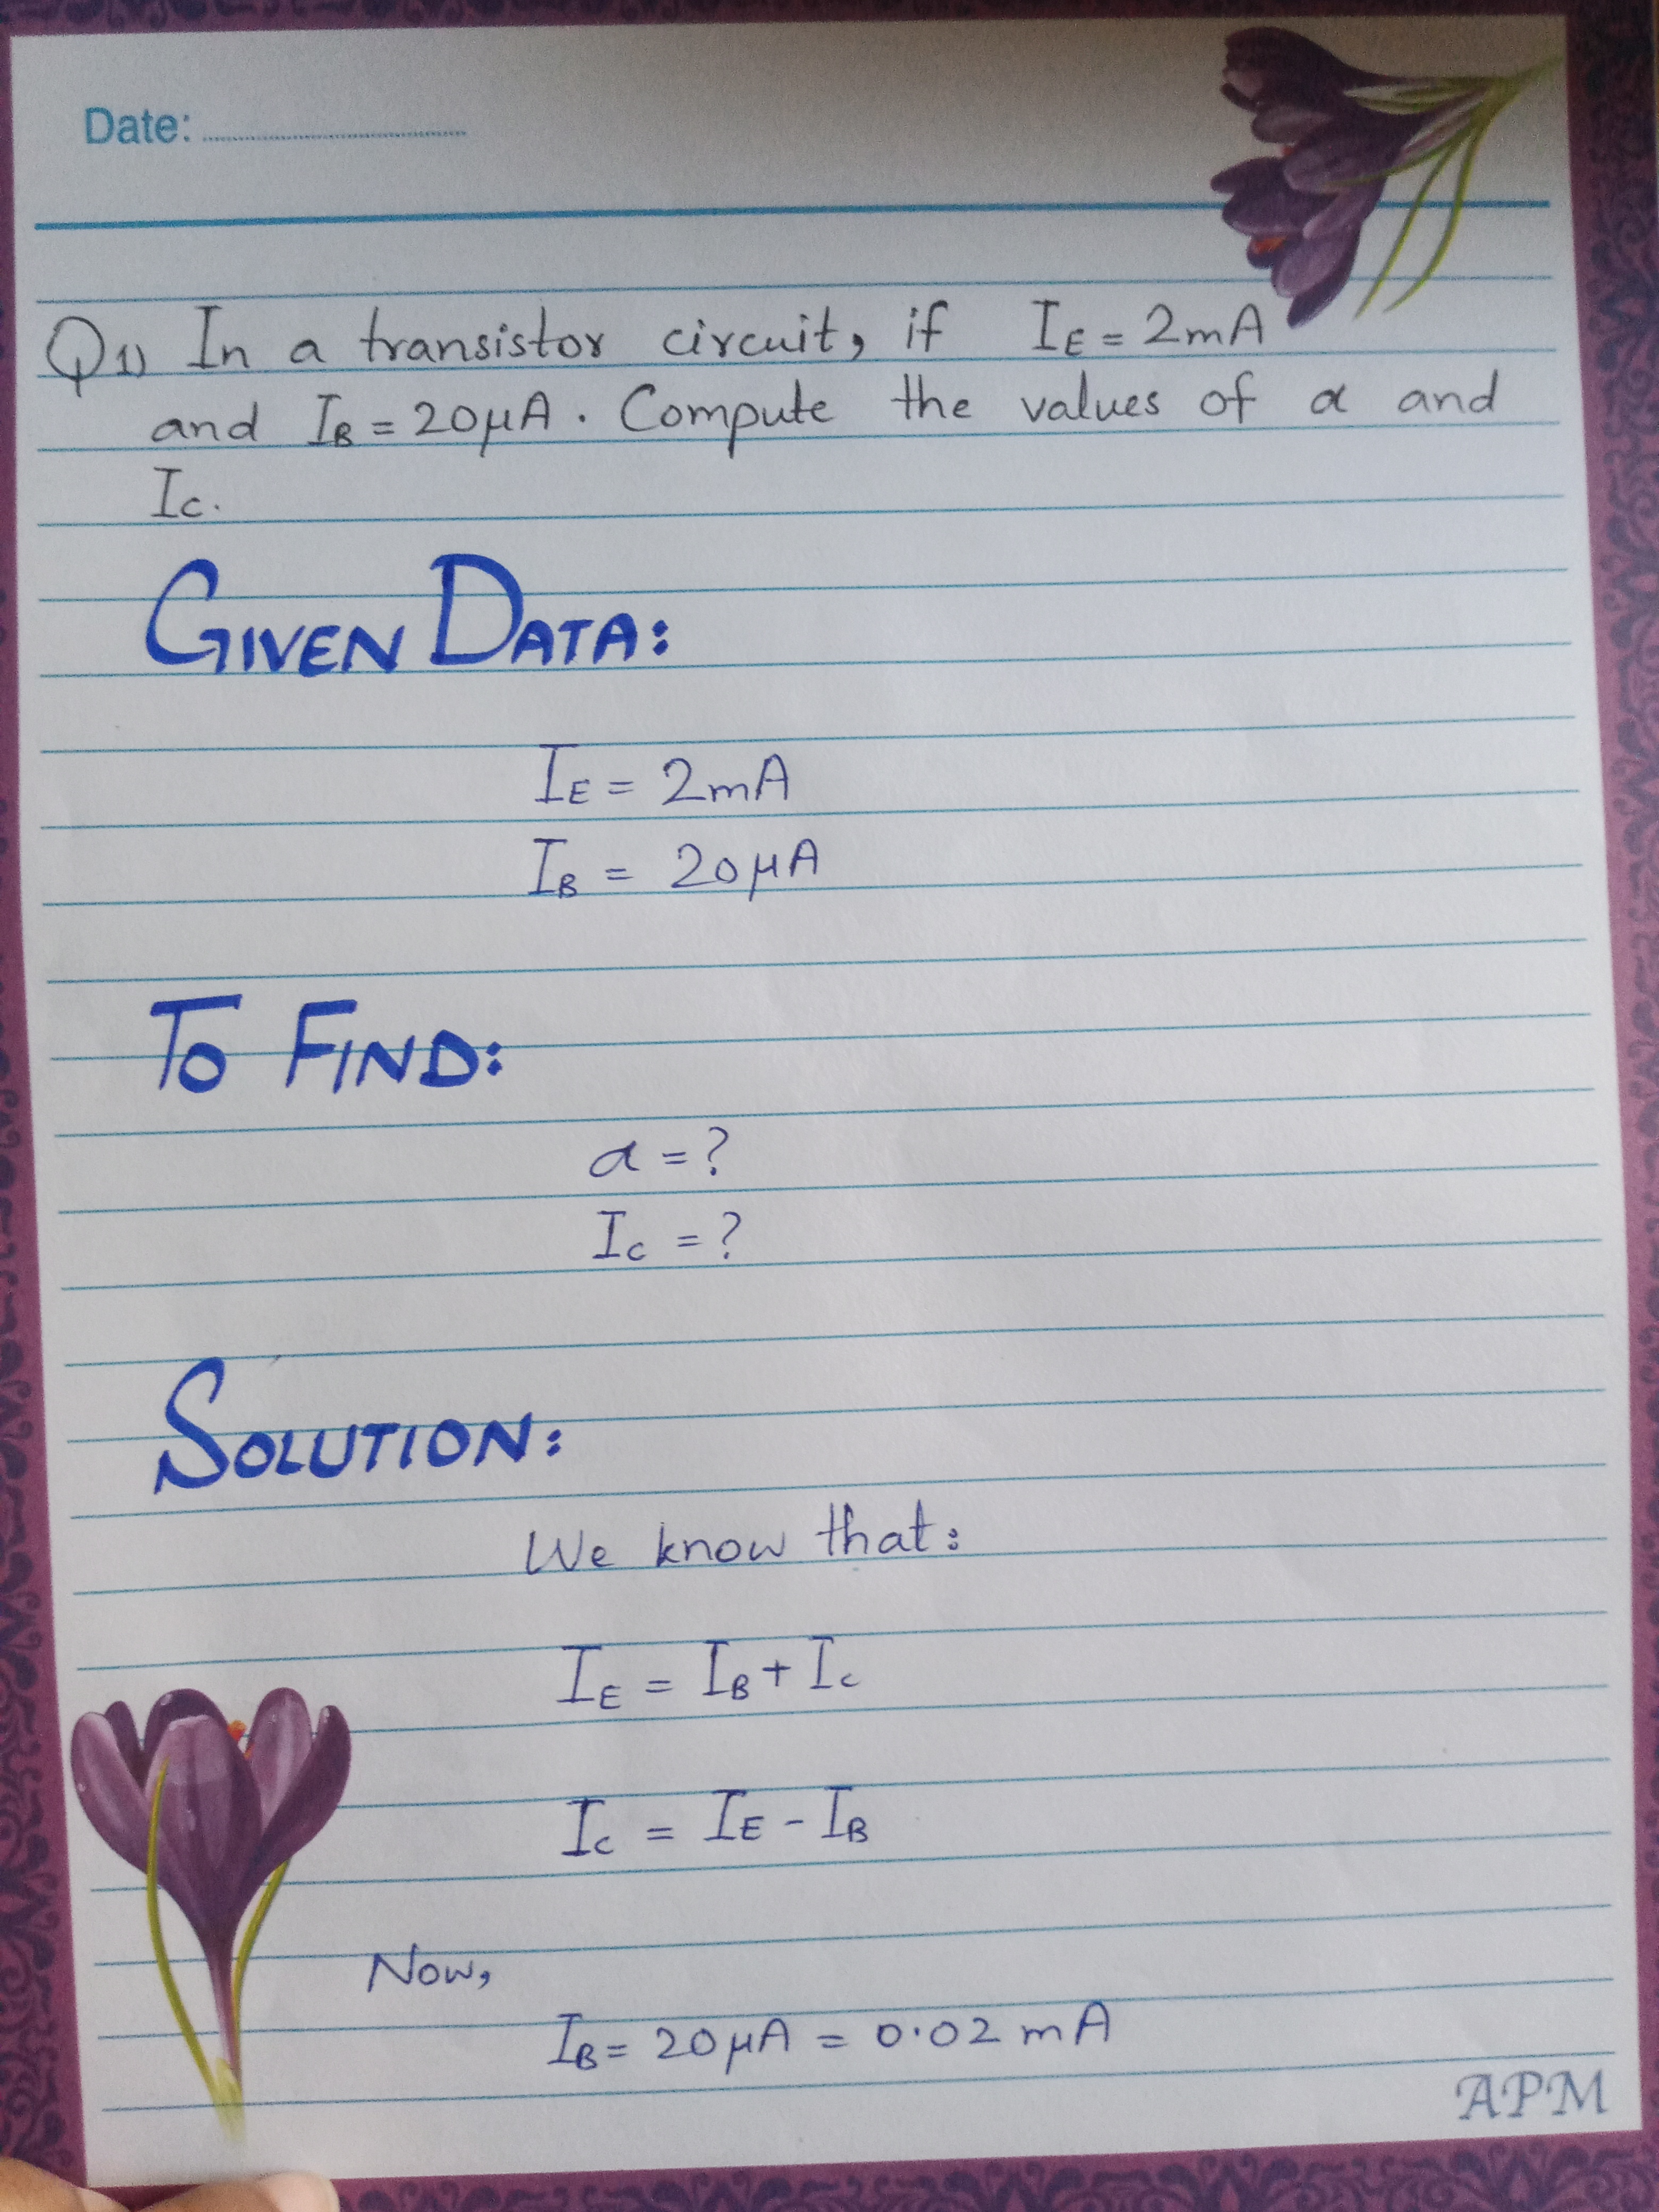 Date:
Q1) In a transistor circuit, if IE = 2mA
and IB = 20μA. Compute the values of α and
Ic.
GIVEN DATA:
IE = 2mA
IB = 20μA
TO FIND:
α = ?
Ic = ?
SOLUTION:
We know that:
IE = IB + Ic
Ic = IE - IB
Now,
IB = 20μA = 0.02 mA
APM